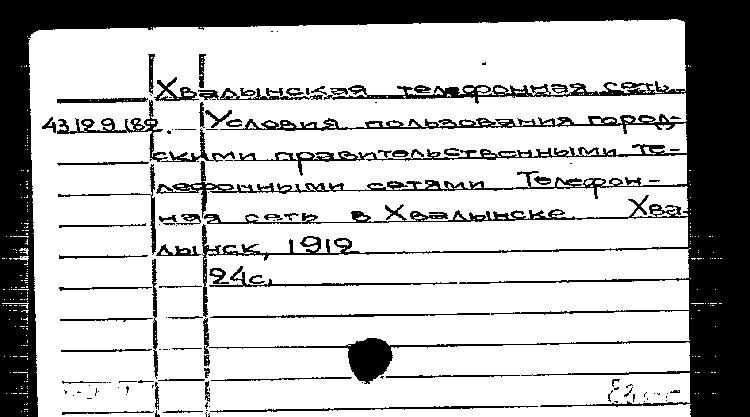 Хвалынская телефонная сеть.
43/29.182. Условия пользования город-
скими правительственными те-
лефонными сетями Телефон-
ная сеть в Хвалынске Хва-
лынск, 1912
24с.